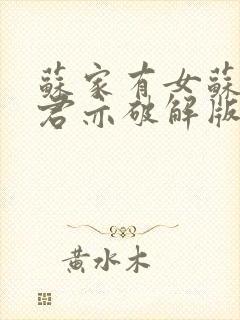 蘇家有女蘇
君亦破解版
黃水木